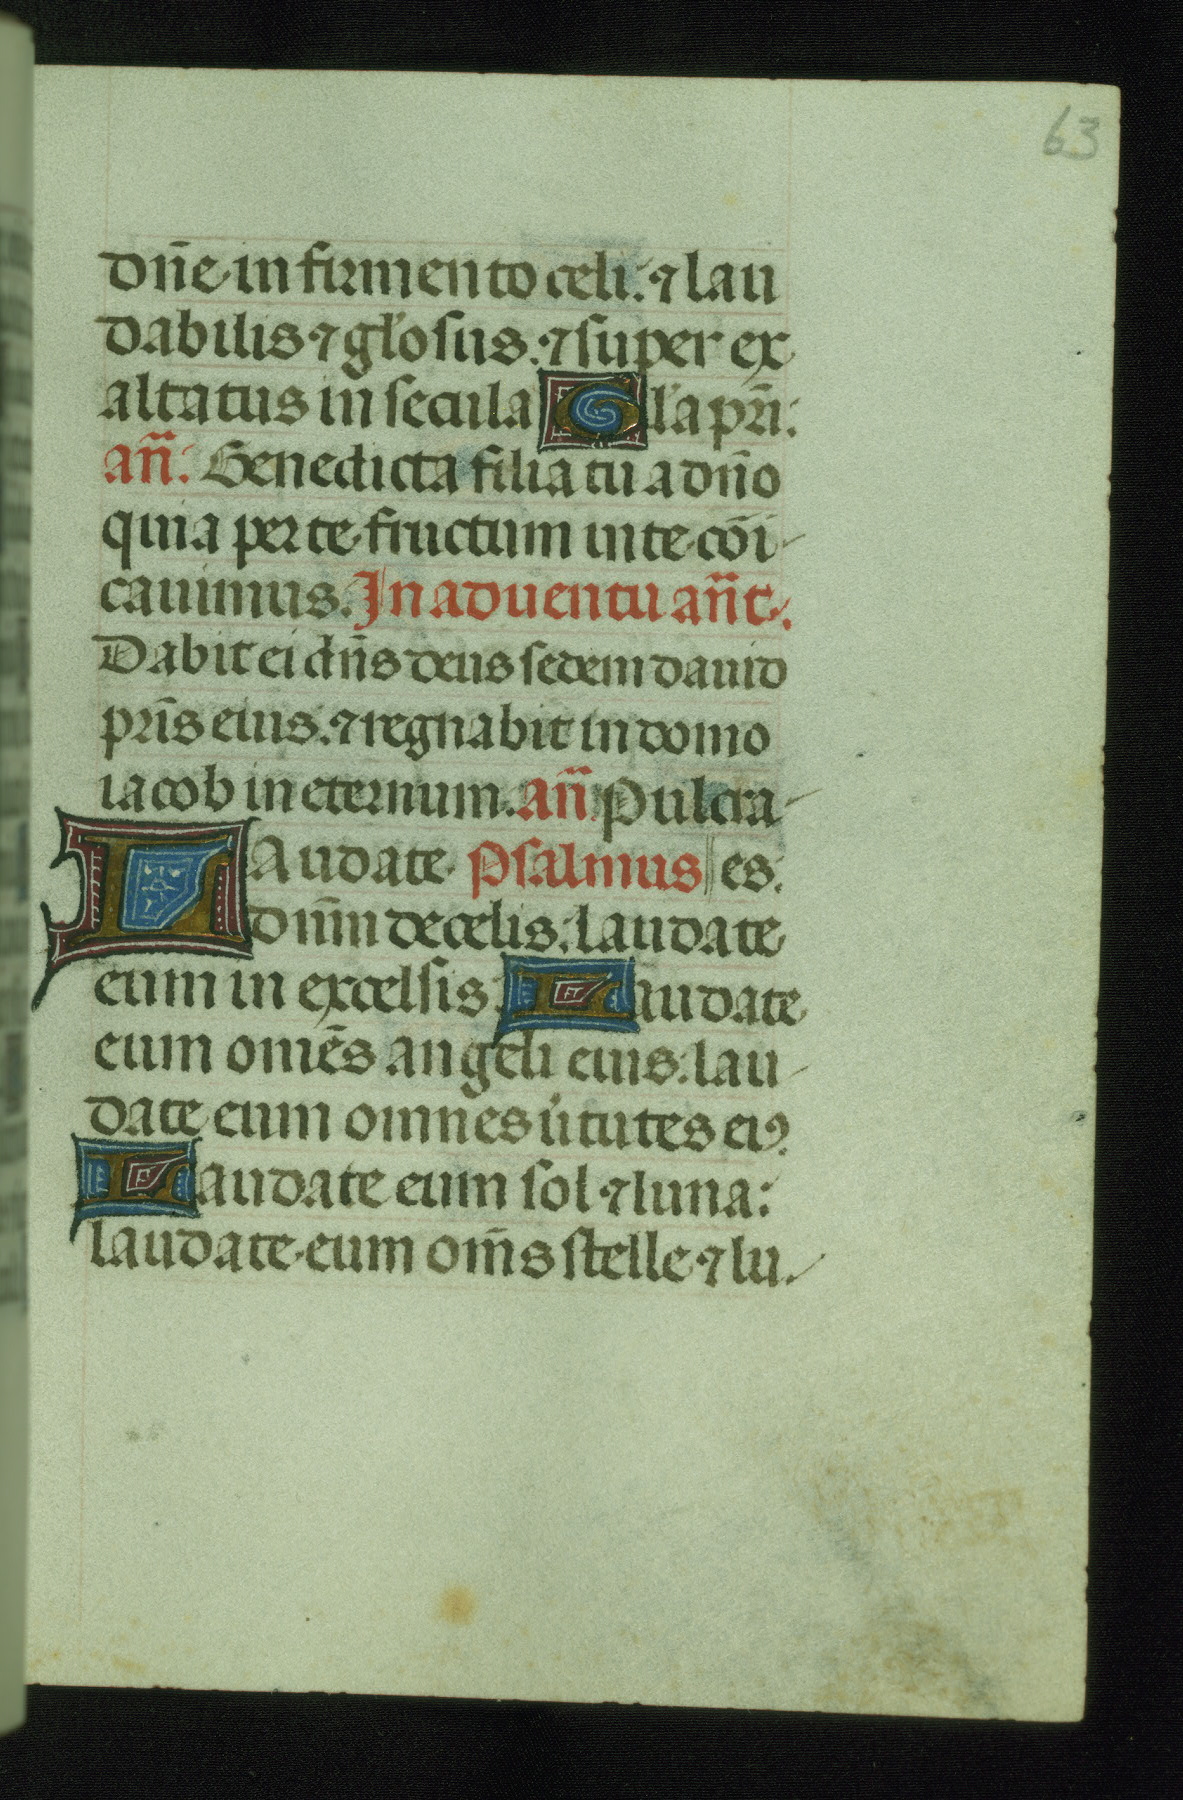 63
dn̄e in firmento celi. ⁊ lau
dabilis ⁊ gl'osus. ⁊ super ex
altatus in secula Gl'a pr̄i:
an̄. Benedicta filia tu a dn̄o
quia per te fructum uite cōi
cauimus. In aduentu an̄t.
Dabit ei dn̄s deus sedem dauid
pr̄is eius. ⁊ regnabit in domo
iacob in eternum. an̄. Pulcra
LAudate Psalmus es.
dnm̄ de celis. laudate
eum in excelsis. Laudate
eum omēs angeli eius. lau
date eum omnes u̇tutes eiꝰ.
Laudate eum sol ⁊ luna:
laudate eum om̄s stelle ⁊ lu.